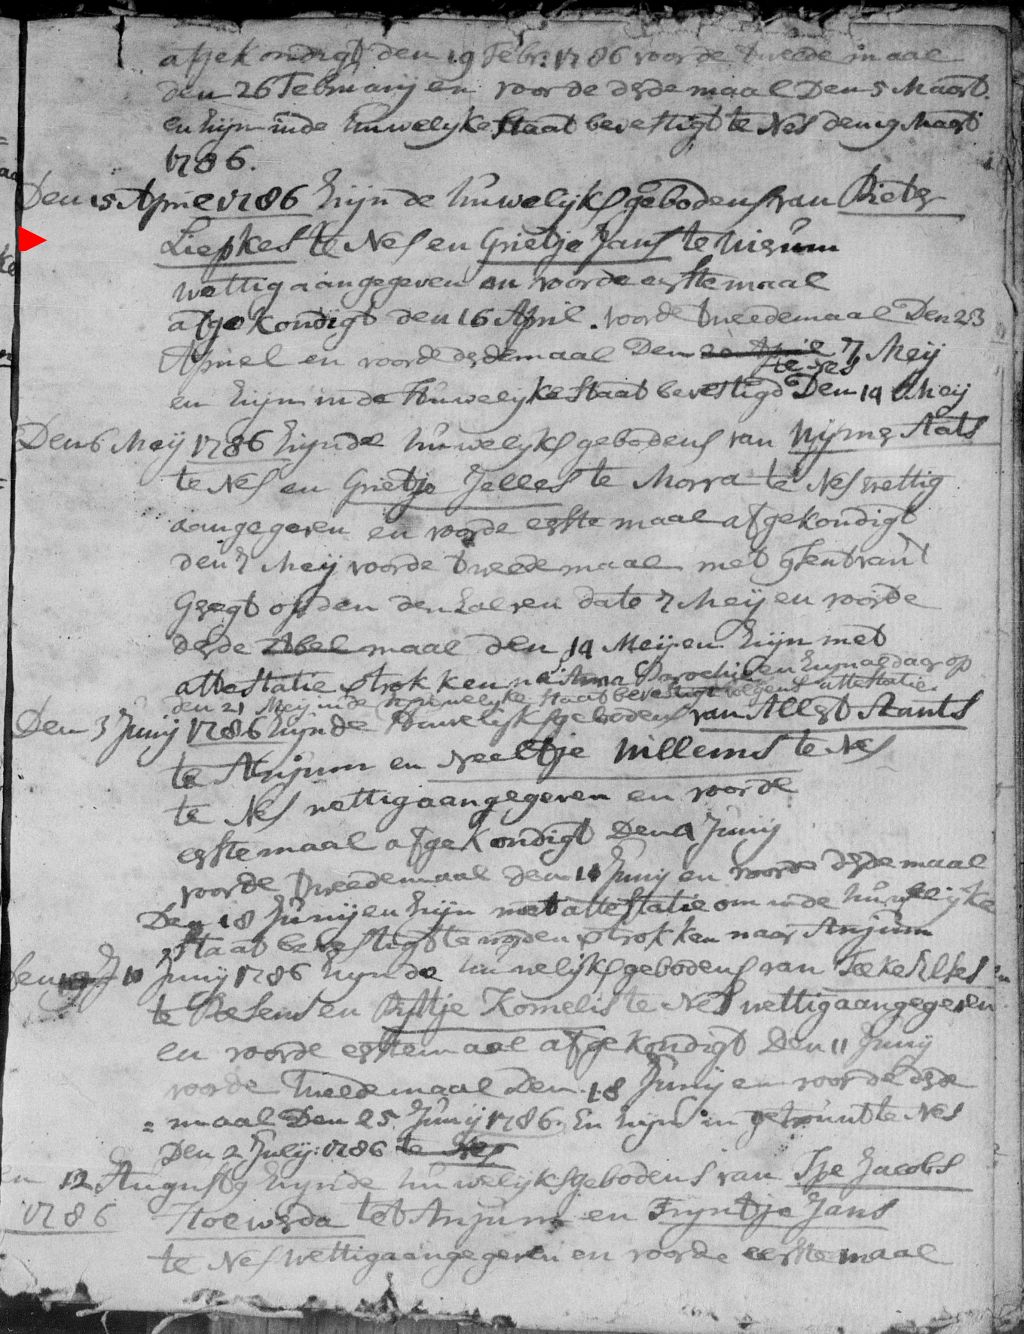 afgekondigt den 19 Febr: 1786 voor de tweede maal
den 26 Februarij en voor de derde maal Den 5 Maart
en Zijn in de Huwelyke Staat bevestigt te Nes den 19 Maart
1786.
Den 15 April 1786 Zijn de huwelijks geboden van Pieter
Liepkes te Nes en Grietje Jans te Nierum
wettig aangegeven en voor de eerste maal
afgekondigt den 16 April. voor de tweede maal Den 23
Apriel en voor de derde maal Den 7 Meij
te Nes
en Zijn in de Huwelyke Staat bevestigd Den 14 Meij
Den 6 Meij 1786 Zijn de huwelyks gebodens van Nijmer Aats
te Nes en Grietje Jelles te Morra te Nes wettig
aangegeven en voor de eerste maal afgekondigt
den 7 Meij voor de tweede maal met
op den den Zelven date 7 Meij en voor de
derde maal den 14 Meij en Zijn met
attestatie vertrokken na Parochij en Zijn aldaar op
den 21 Meij in de huwelyke staat bevestigt volgens attestatie.
Den 3 Junij 1786 Zijn de Huwelijks gebodens van Allert Stants
te Anjum en Neeltje Willems te Nes
te Nes wettig aangegeven en voor de
eerste maal afgekondigt Den 4 Junij
voor de tweede maal den 11 Junij en voor de derde maal
Den 18 Junij en Zijn met attestatie om in de huwelijke
Staat bevestigt te worden vertrokken naar Anjum
10 Junij 1786 Zijn de huwelijks gebodens van Taeke Elses
te Pesens en Pittje Kornelis te Nes wettig aangegeven
en voor de eerste maal afgekondigt Den 11 Junij
voor de tweede maal den 18 Junij en voor de derde
= maal Den 25 Junij 1786. En Zijn in getrount te Nes
Den 2 Julij: 1786 te Nes
12 Augusty Zijn de huwelijksgebodens van Tje Jacobs
1786 Hoewerda tot Anjum en Trijntje Jans
te Nes wettig aangegeven en voor de eerste maal